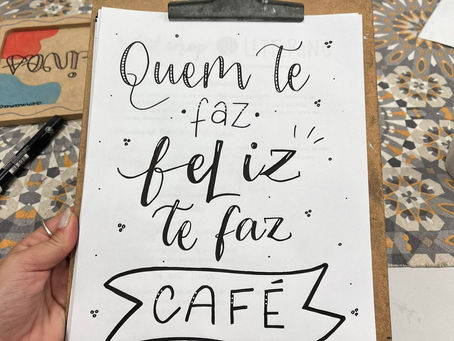 Quem te
faz
feliz
te faz
CAFÉ